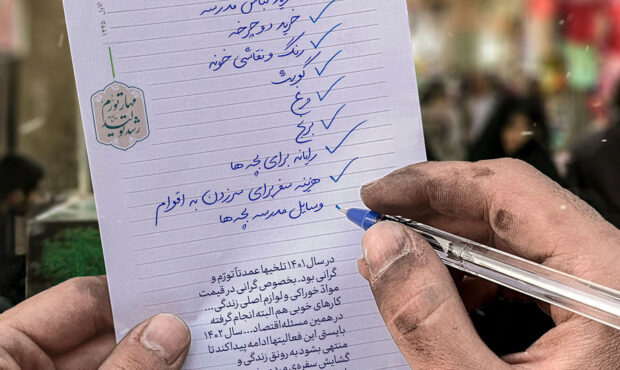 خرید لباس مدرسه
خرید دوچرخه
رنگ و نقاشی خونه
گوشت
مرغ
برنج
رایانه برای بچه ها
هزینه سفر برای سر زدن به اقوام
وسایل مدرسه بچه ها
مهار تورّم
رشد تولید
در سال ۱۴۰۱ تلخیها عمدتاً تورّم و
گرانی بود. بخصوص گرانی در قیمت
موادّ خوراکی و لوازم اصلی زندگی...
کارهای خوبی هم البتّه انجام گرفته
در همین مسئله اقتصاد... سال ۱۴۰۲
بایستی این فعالیتها ادامه پیدا کند تا
منتهی بشود به رونق زندگی و
گشایش سفره‌ی